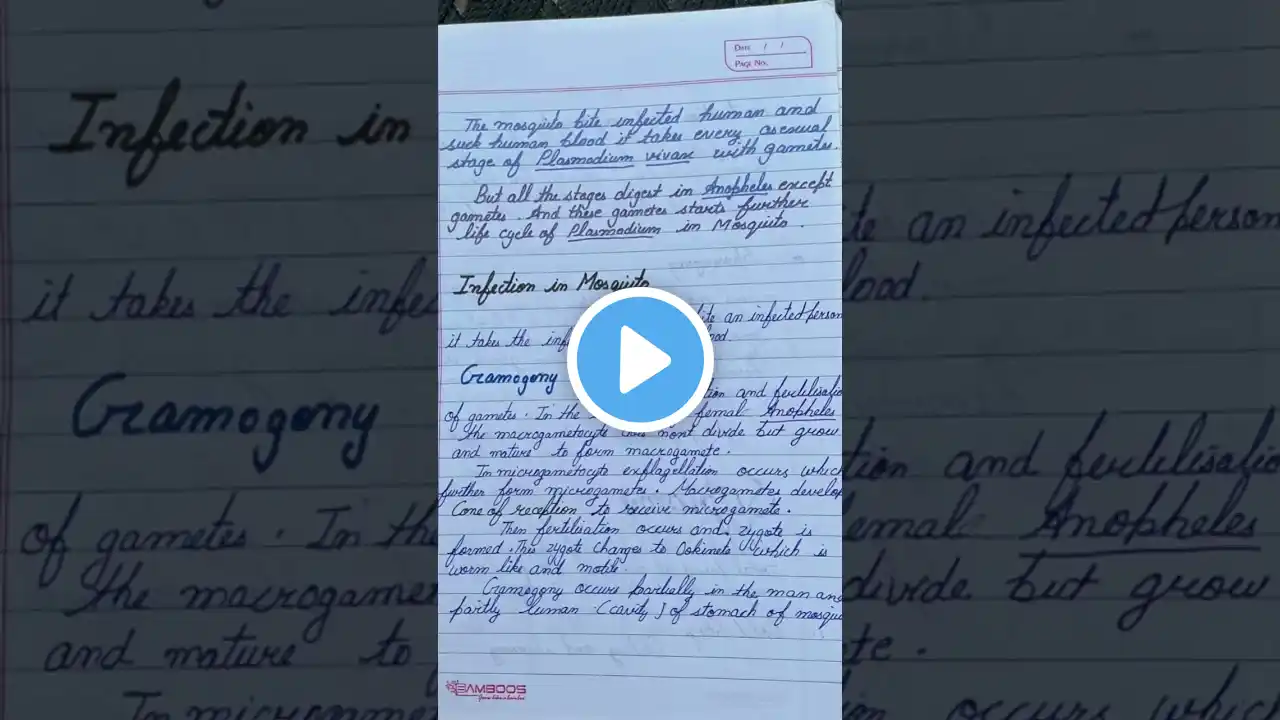 Date / /
Page No.
The mosquito bite infected human and
suck human blood it takes every asexual
stage of Plasmodium vivax with gametes.
But all the stages digest in Anopheles except
gametes. And these gametes starts further
life cycle of Plasmodium in Mosquito.
Infection in Mosquito
te an infected person
it takes the inf ood.
Gamogony tion and fertilisatio
of gametes. In the femal Anopheles
the macrogametocyte does divide but grow
and mature to form macrogamete.
In microgametocyte exflagellation occurs which
further form microgametes. Macrogametes develop
Cone of reception to receive microgamete.
Then fertilisation occurs and zygote is
formed. This zygote changes to Ookinete which is
worm like and motile.
Gamogony occurs partially in the man and
partly luman (cavity) of stomach of mosqui
BAMBOOS
Infection in
te an infected person
it takes the infe lood.
Gamogony tion and fertilisatio
of gametes. In the emal Anopheles
the macrogame divide but grow
and mature to te.
In microgam occurs which